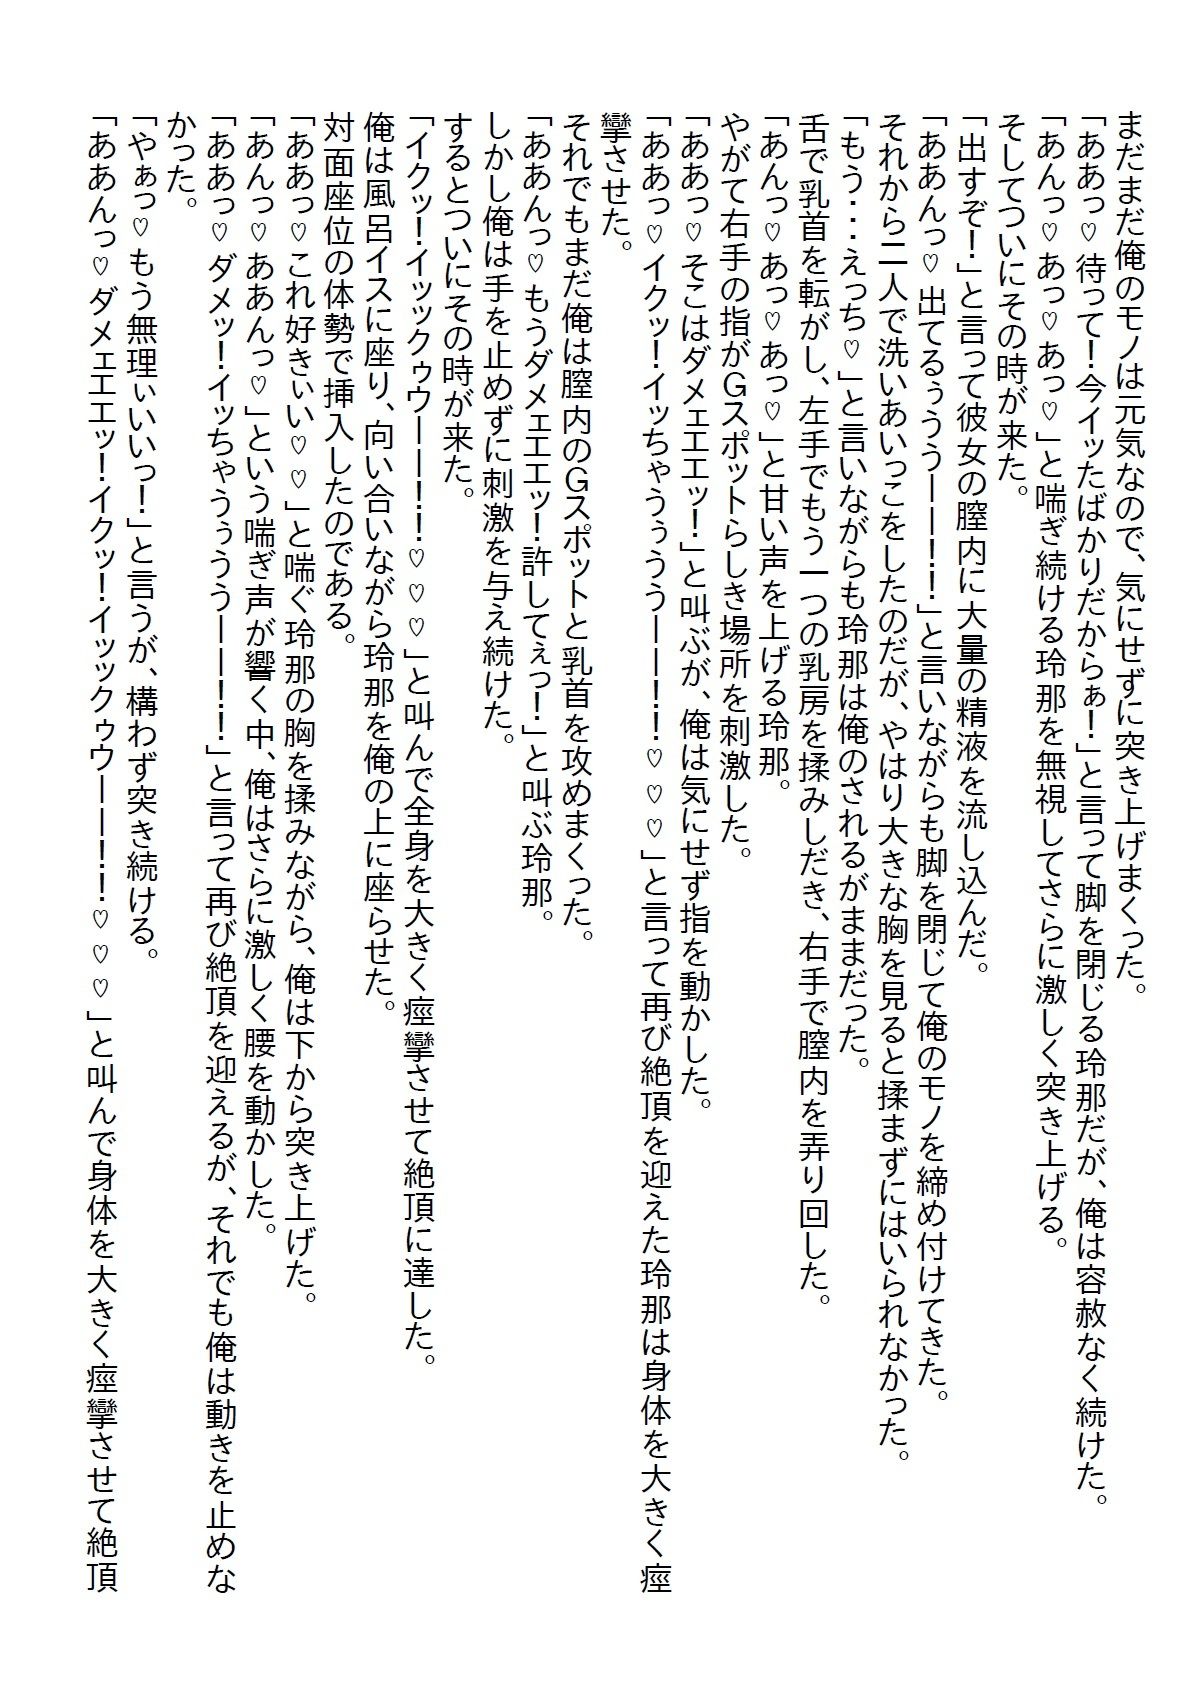 まだまだ俺のモノは元気なので、気にせずに突き上げまくった。
「ああっ♡待って！今イッたばかりだからぁ！」と言って脚を閉じる玲那だが、俺は容赦なく続けた。
「あんっ♡あっ♡あっ♡」と喘ぎ続ける玲那を無視してさらに激しく突き上げる。
そしてついにその時が来た。
「出すぞ！」と言って彼女の膣内に大量の精液を流し込んだ。
「ああんっ♡出てるぅうう――！！」と言いながらも脚を閉じて俺のモノを締め付けてきた。
それから二人で洗いあいっこをしたのだが、やはり大きな胸を見ると揉まずにはいられなかった。
「もう・・・えっち♡」と言いながらも玲那は俺のされるがままだった。
舌で乳首を転がし、左手でもう一つの乳房を揉みしだき、右手で膣内を弄り回した。
「あんっ♡あっ♡あっ♡」と甘い声を上げる玲那。
やがて右手の指がＧスポットらしき場所を刺激した。
「ああっ♡そこはダメェエエッ！」と叫ぶが、俺は気にせず指を動かした。
「ああっ♡イクッ！イッちゃうぅうう――！！♡♡♡」と言って再び絶頂を迎えた玲那は身体を大きく痙
攣させた。
それでもまだ俺は膣内のＧスポットと乳首を攻めまくった。
「ああんっ♡もうダメェエエッ！許してぇっ！」と叫ぶ玲那。
しかし俺は手を止めずに刺激を与え続けた。
するとついにその時が来た。
「イクッ！イッックゥウ――！！♡♡♡」と叫んで全身を大きく痙攣させて絶頂に達した。
俺は風呂イスに座り、向い合いながら玲那を俺の上に座らせた。
対面座位の体勢で挿入したのである。
「ああっ♡これ好きぃい♡♡」と喘ぐ玲那の胸を揉みながら、俺は下から突き上げた。
「あんっ♡ああんっ♡」という喘ぎ声が響く中、俺はさらに激しく腰を動かした。
「ああっ♡ダメッ！イッちゃうぅうう――！！」と言って再び絶頂を迎えるが、それでも俺は動きを止めな
かった。
「やぁっ♡もう無理ぃいいっ！」と言うが、構わず突き続ける。
「ああんっ♡ダメェエエッ！イクッ！イッックゥウ――！！♡♡♡」と叫んで身体を大きく痙攣させて絶頂